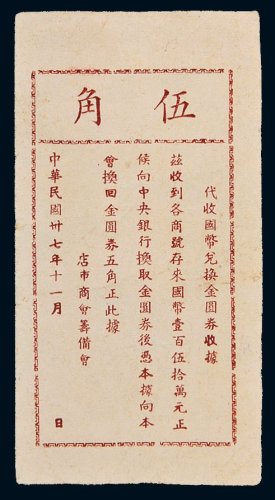 伍角
代收國幣兌換金圓券收據
茲收到各商號存來國幣壹百伍拾萬元正
候向中央銀行換取金圓券後憑本據向本
會換回金圓券五角正此據
店市商會籌備會
中華民國卅七年十一月　　日